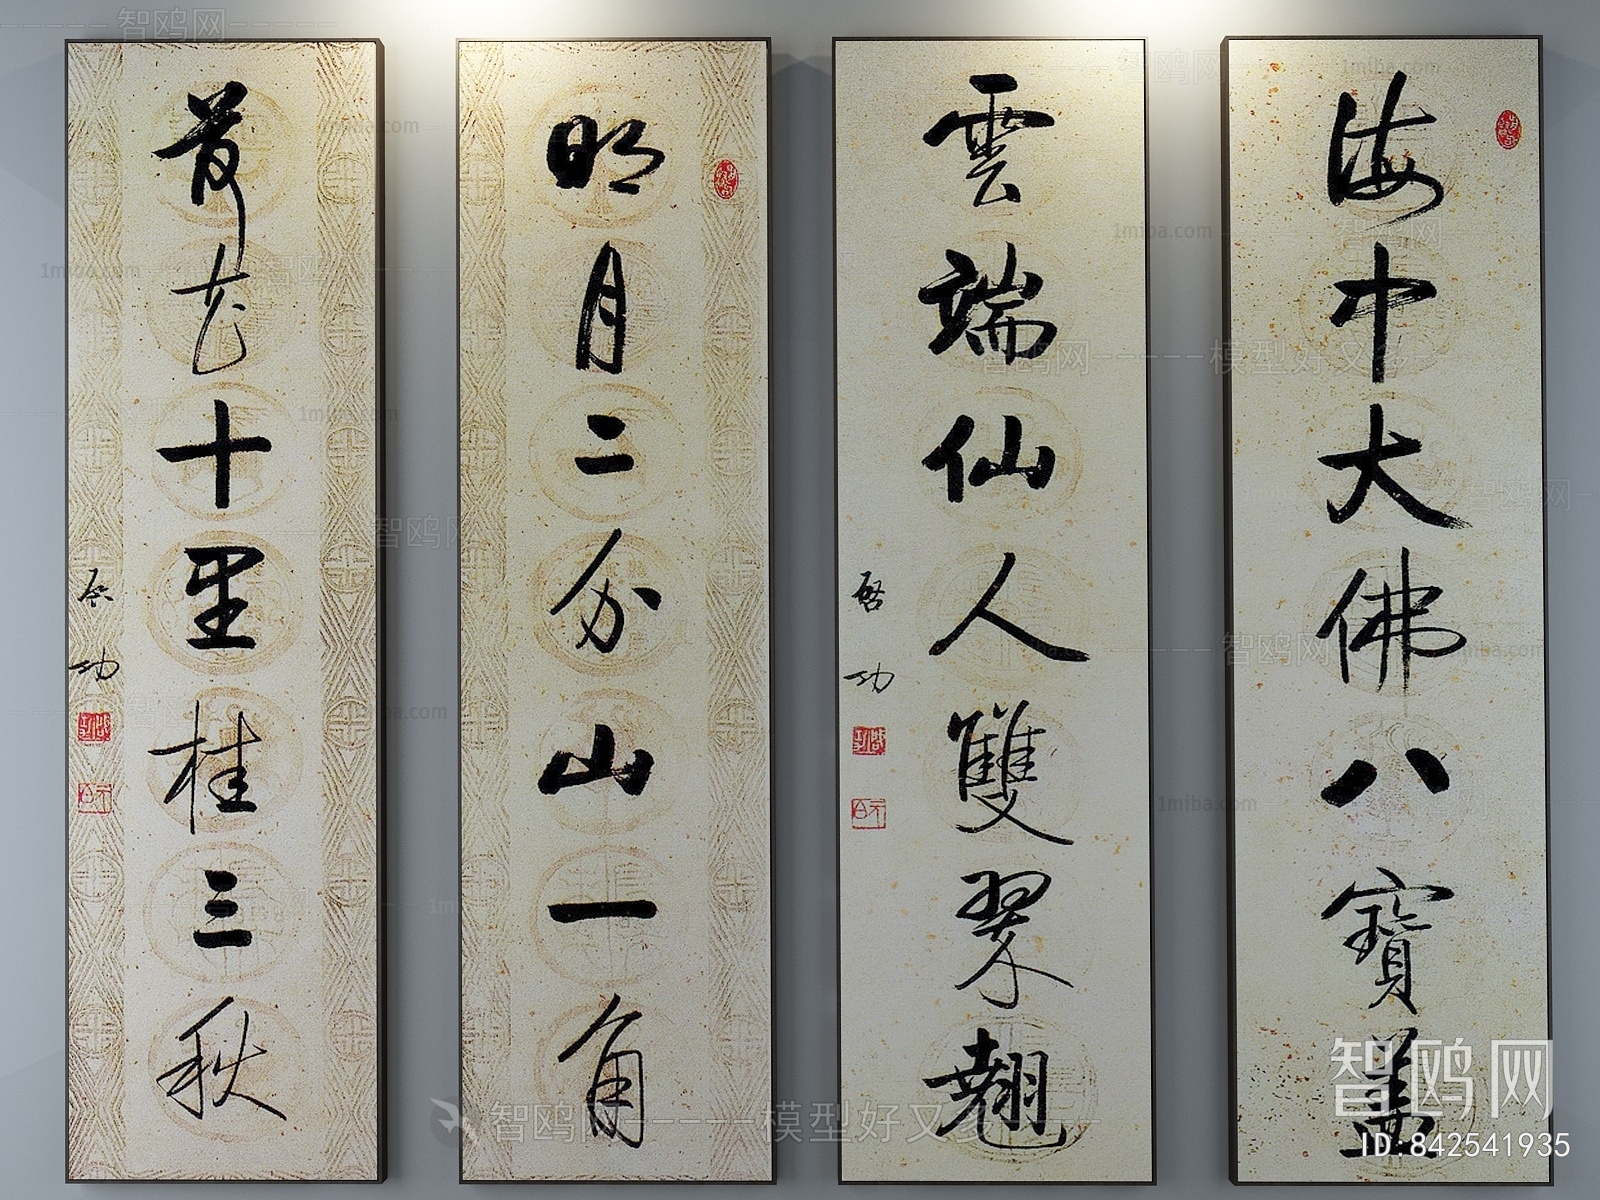 海中大佛八寶蓋
雲端仙人雙翠翹
啓功
明月二分山一角
荷花十里桂三秋
启功
智鸥网-----模型好又多
1miba.com
智鸥网
ID:842541935